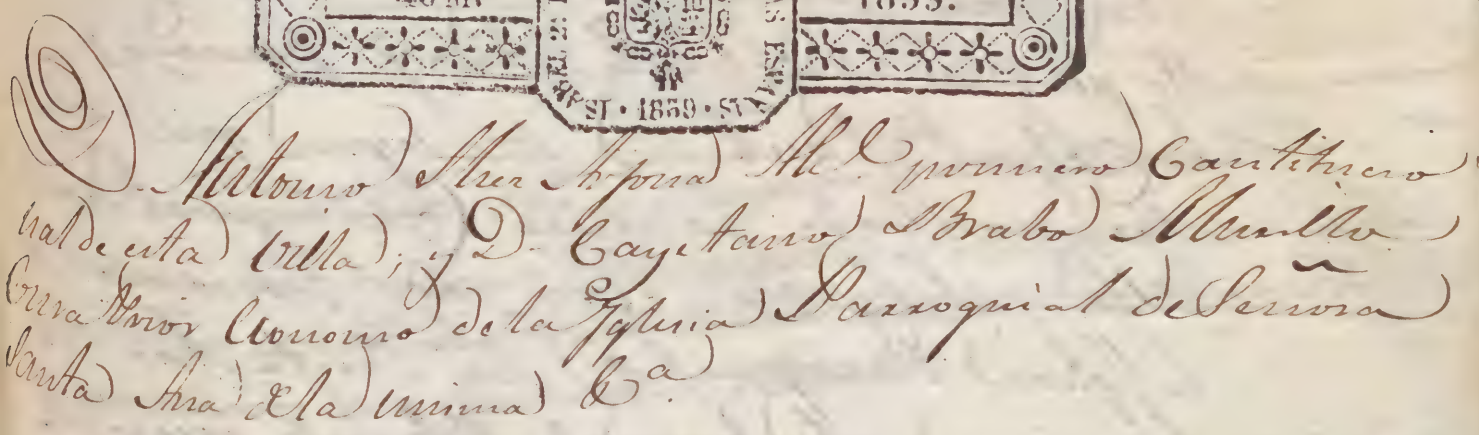 40 MR
1839.
ISABEL 2ª
ESPAÑAS
ST • 1839 • SV
D. Antonio Shez Arjona Al.e primero Constitucio
nal de esta Villa; y D. Cayetano Brabo Murillo
Cura Prior Economo de la Yglesia Parroquial de Señora
Santa Ana de la misma &.a